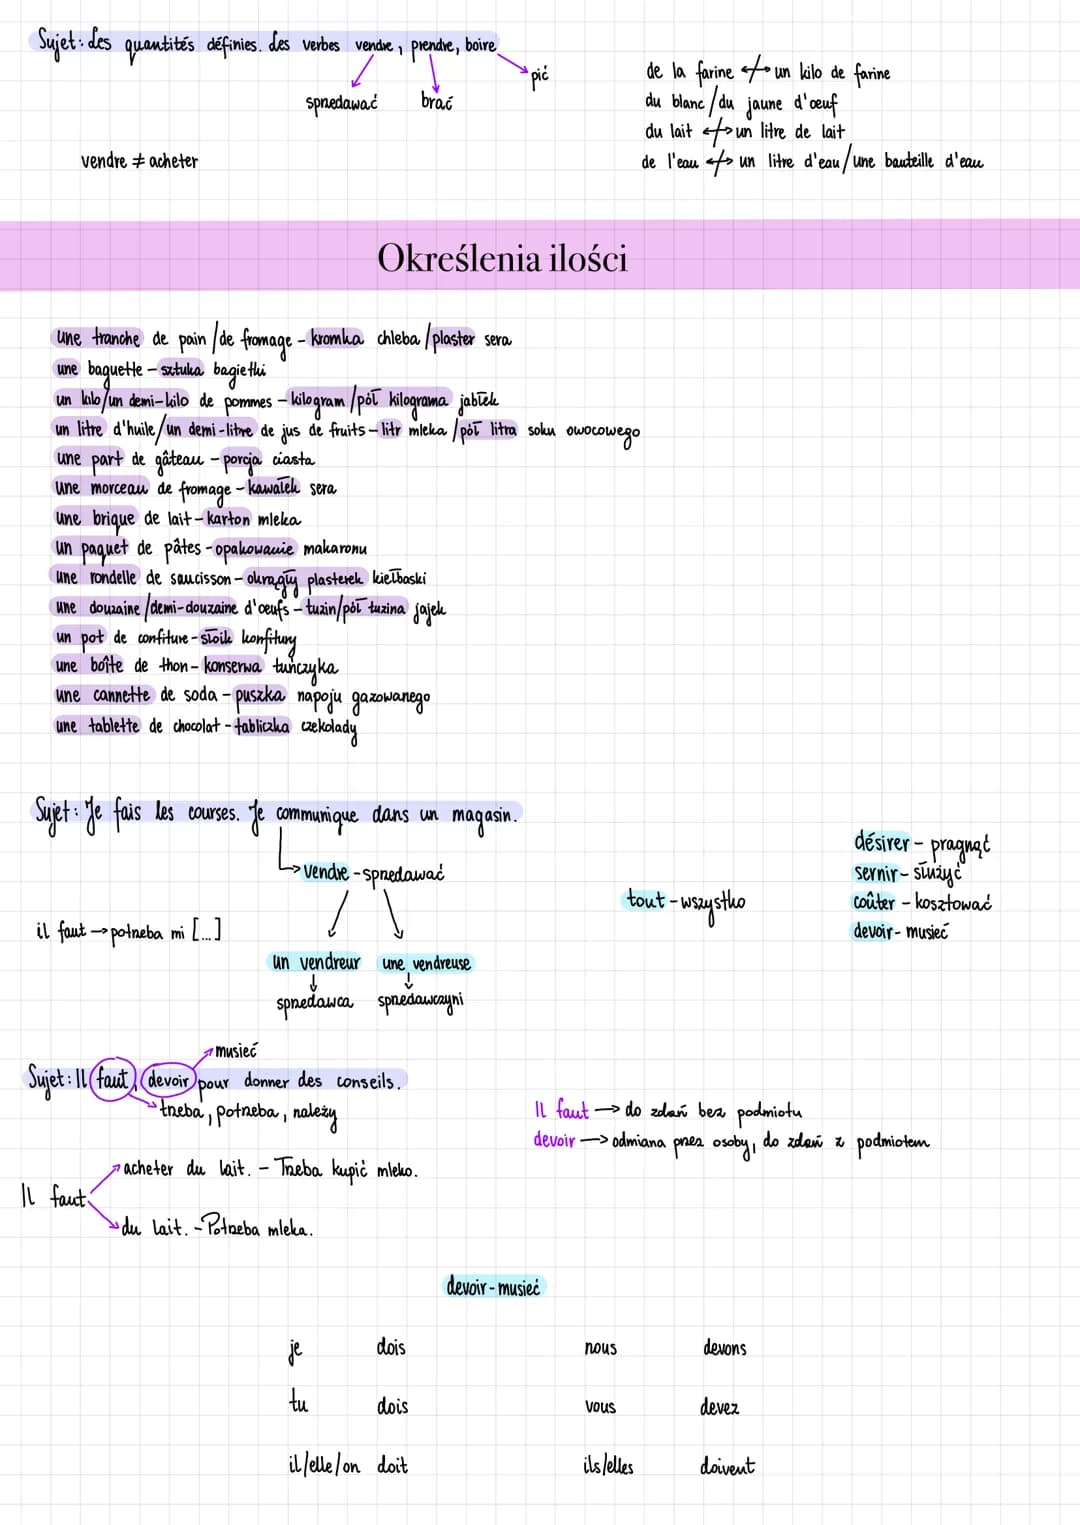 Sujet: Les quantités définies. Les verbes vendre, prendre, boire
sprzedawać brać pić
vendre ≠ acheter
de la farine ↔ un kilo de farine
du blanc/du jaune d'œuf
du lait ↔ un litre de lait
de l'eau ↔ un litre d'eau/une bauteille d'eau
Określenia ilości
une tranche de pain/de fromage - kromka chleba/plaster sera
une baguette - sztuka bagietki
un kilo/un demi-kilo de pommes - kilogram/pół kilograma jabłek
un litre d'huile/un demi-litre de jus de fruits - litr mleka/pół litra soku owocowego
une part de gâteau - porcja ciasta
une morceau de fromage - kawałek sera
une brique de lait - karton mleka
un paquet de pâtes - opakowanie makaronu
une rondelle de saucisson - okrągły plasterek kiełbaski
une douzaine/demi-douzaine d'oeufs - tuzin/pół tuzina jajek
un pot de confiture - słoik konfitury
une boîte de thon - konserwa tuńczyka
une cannette de soda - puszka napoju gazowanego
une tablette de chocolat - tabliczka czekolady
Sujet: Je fais les courses. Je communique dans un magasin.
→ vendre - sprzedawać
il faut → potrzeba mi [...]
un vendreur une vendreuse
↓ ↓
sprzedawca sprzedawczyni
tout - wszystko
désirer - pragnąć
sernir - służyć
coûter - kosztować
devoir - musieć
musieć
Sujet: Il faut, devoir pour donner des conseils.
trzeba, potrzeba, należy
Il faut → do zdań bez podmiotu
devoir → odmiana przez osoby, do zdań z podmiotem
acheter du lait. - Trzeba kupić mleko.
Il faut
du lait. - Potrzeba mleka.
devoir - musieć
je dois nous devons
tu dois vous devez
il/elle/on doit ils/elles doivent